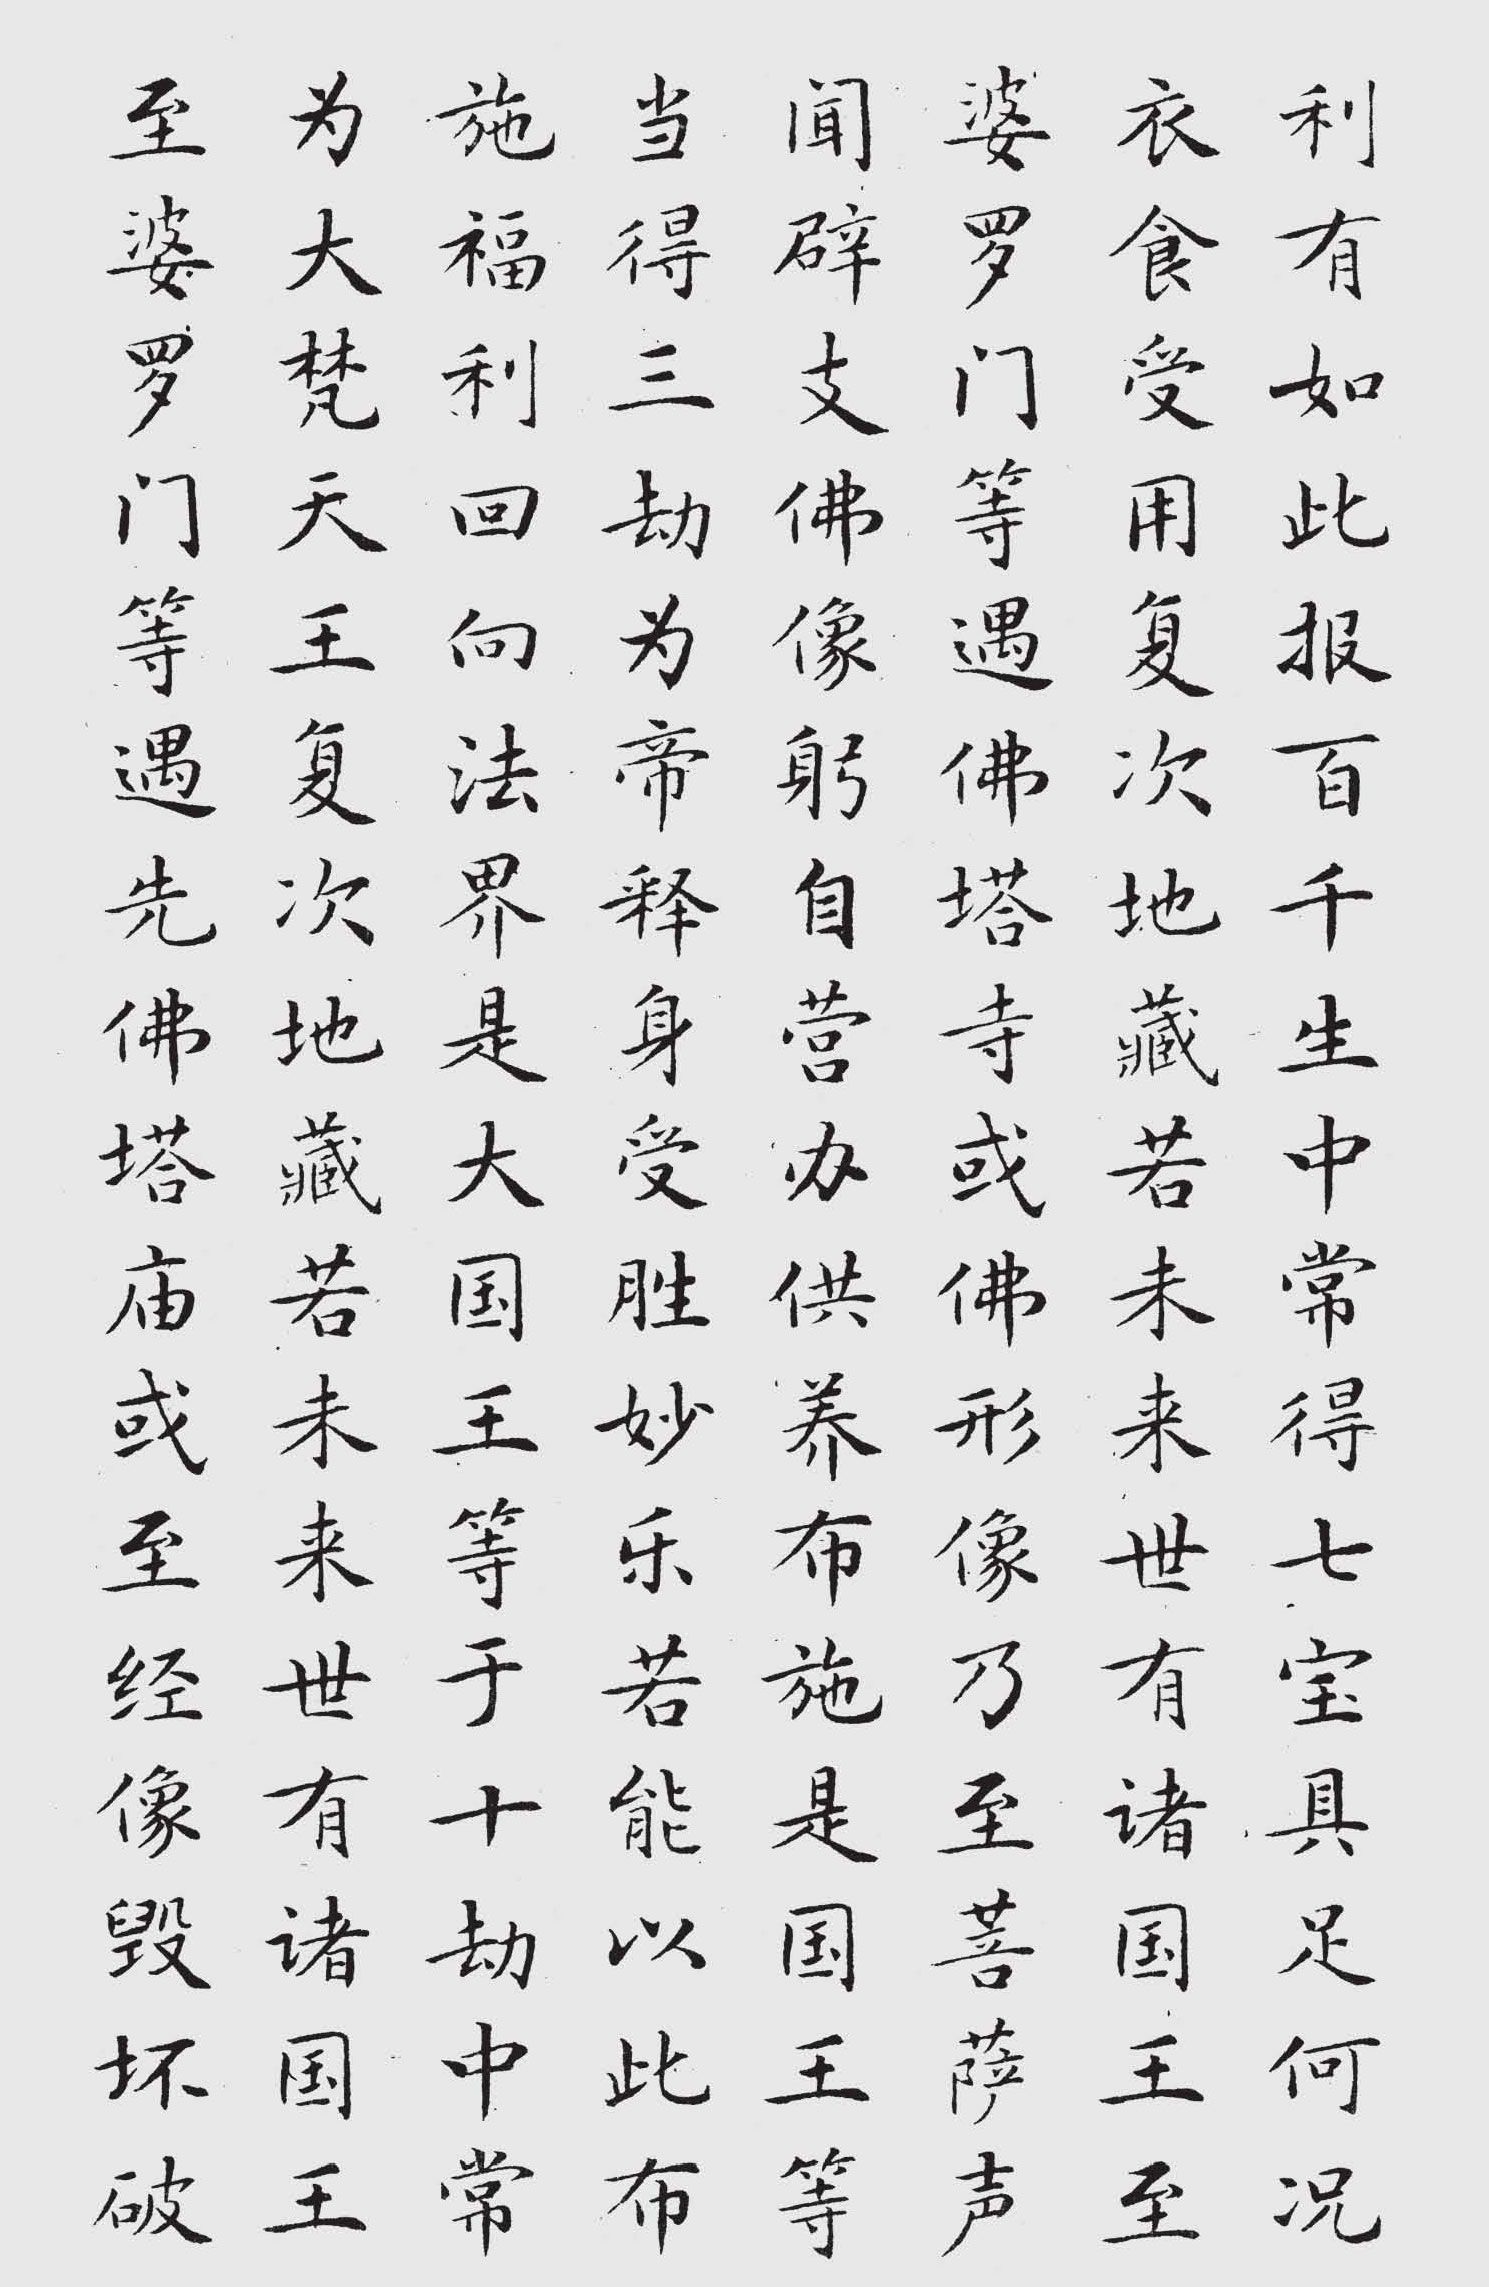 利有如此报百千生中常得七宝具足何况
衣食受用复次地藏若未来世有诸国王至
婆罗门等遇佛塔寺或佛形像乃至菩萨声
闻辟支佛像躬自营办供养布施是国王等
当得三劫为帝释身受胜妙乐若能以此布
施福利回向法界是大国王等于十劫中常
为大梵天王复次地藏若未来世有诸国王
至婆罗门等遇先佛塔庙或至经像毁坏破